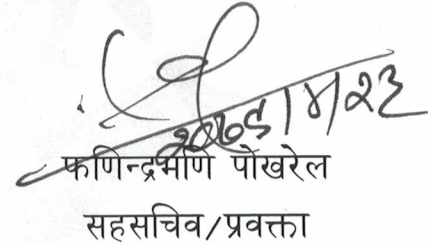 २०७९/५/२३
फणिन्द्रमणि पोखरेल
सहसचिव/प्रवक्ता